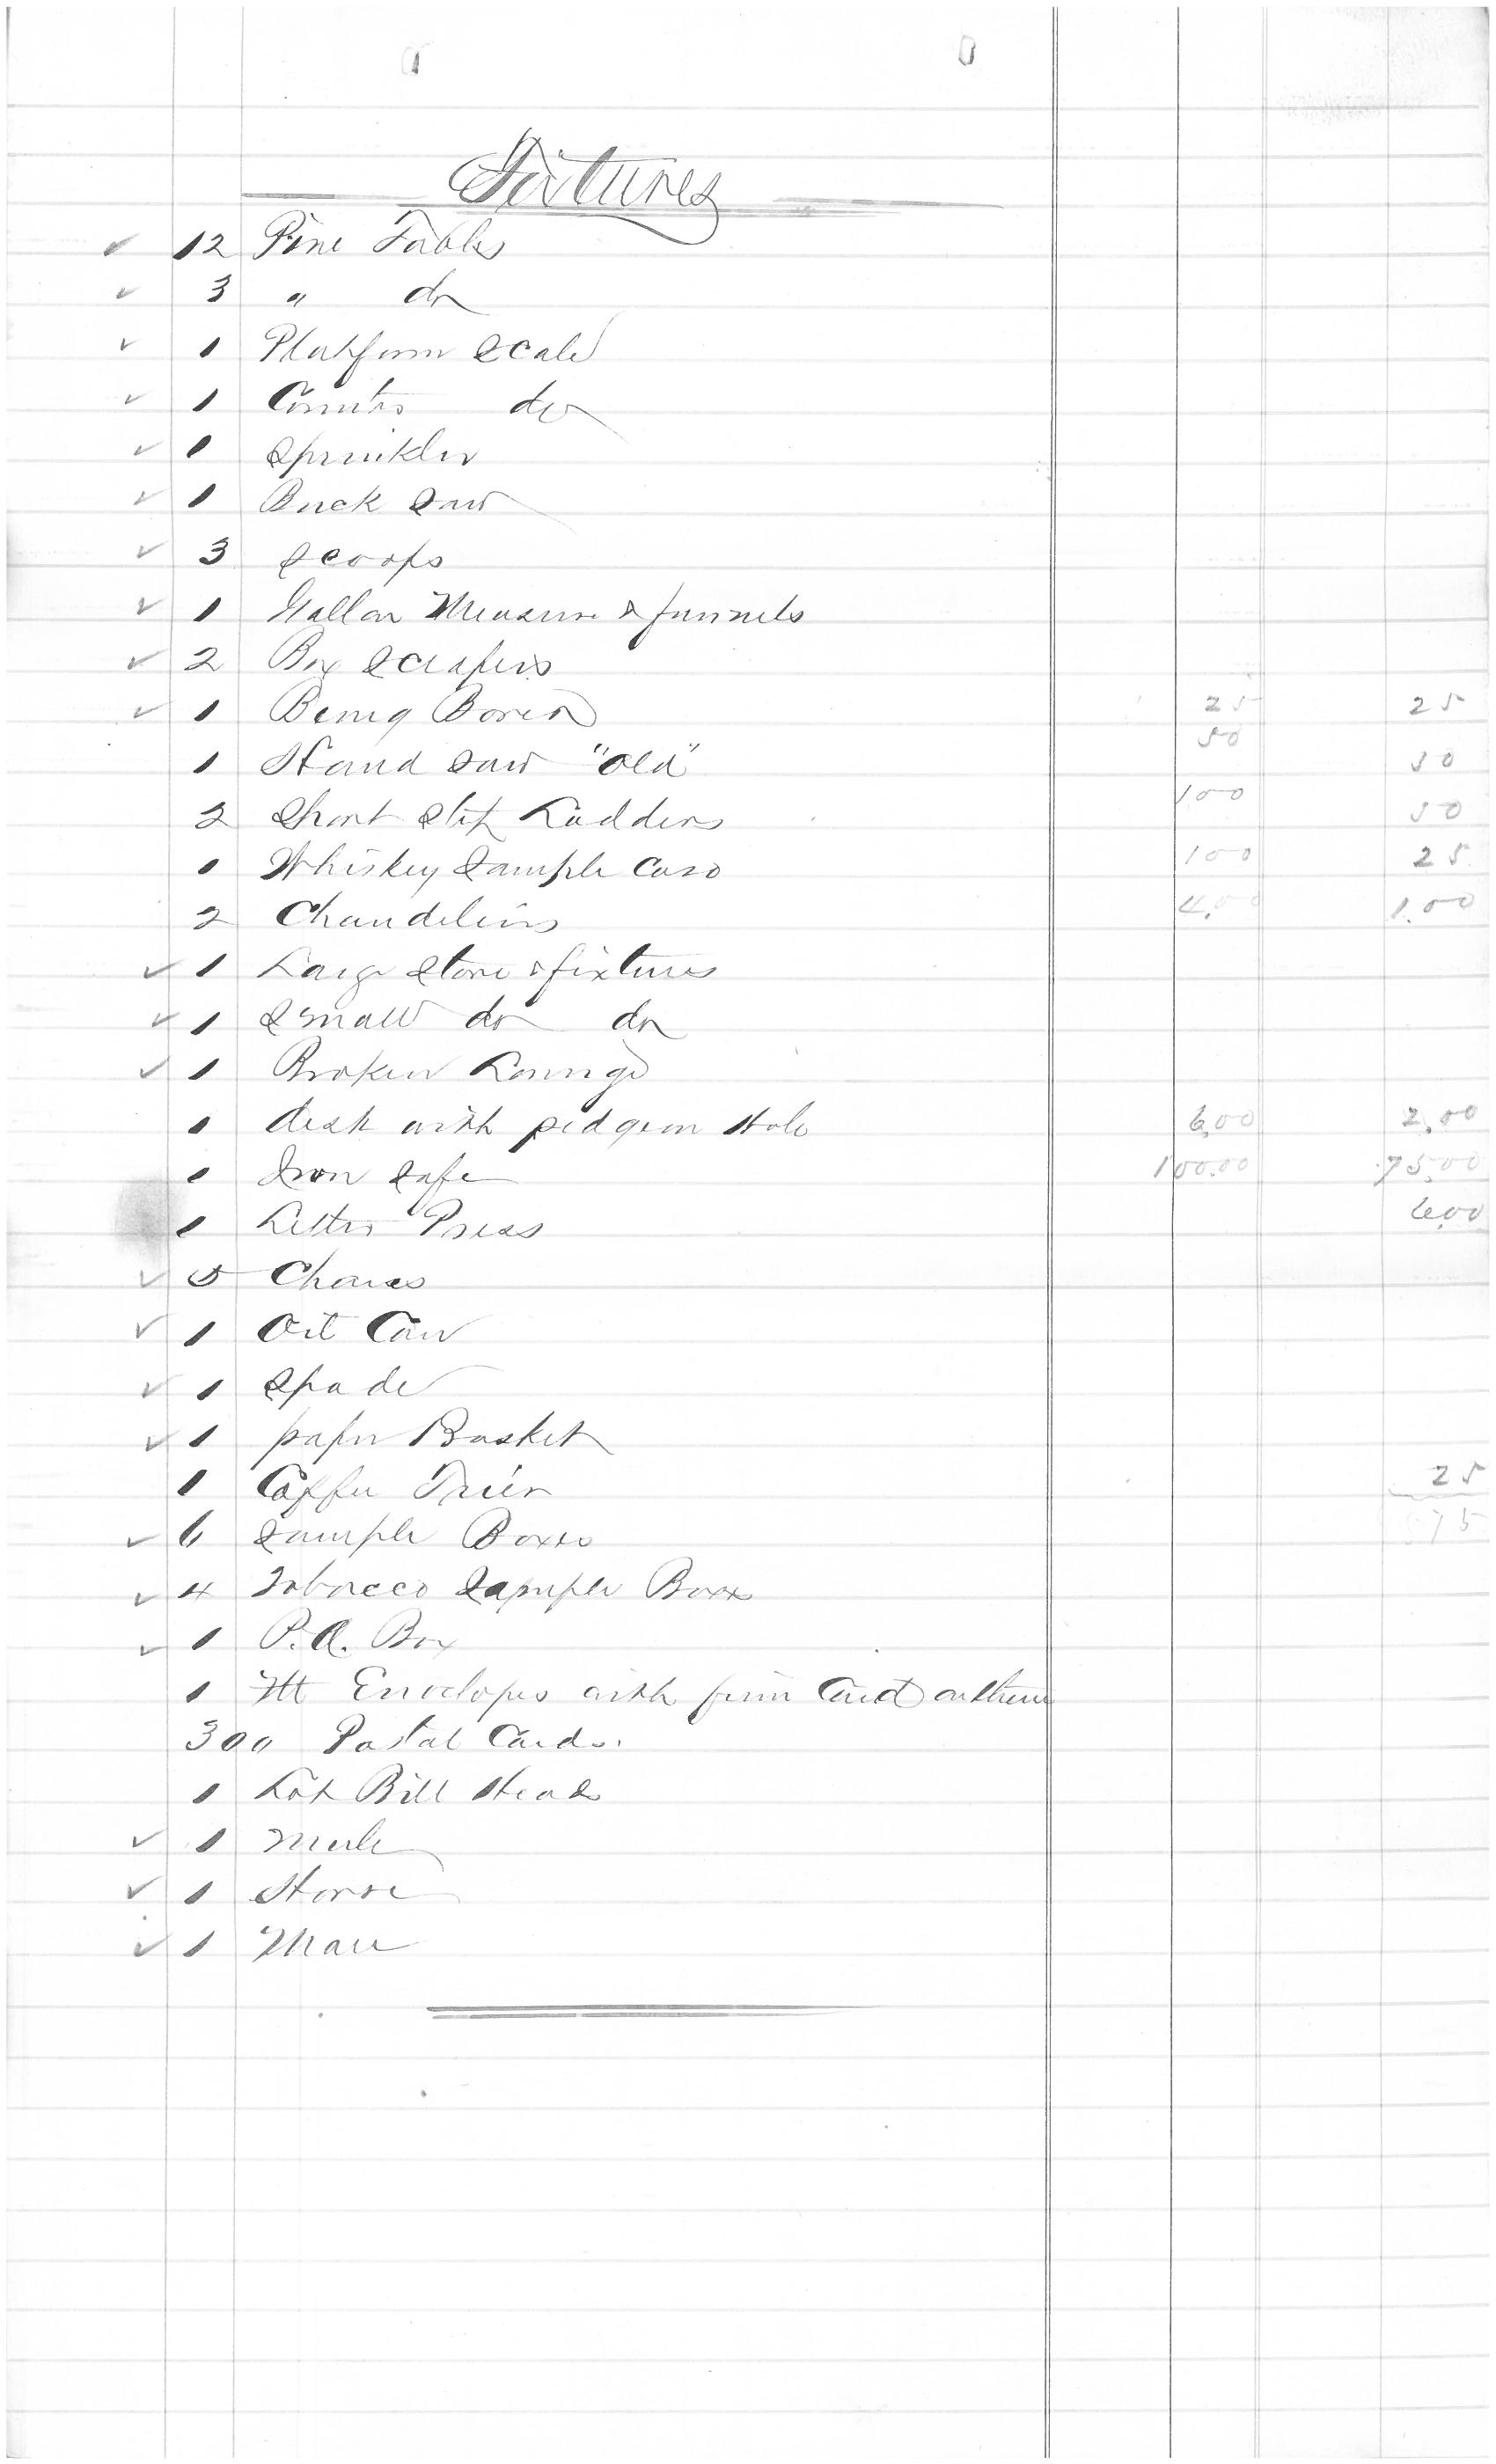 Fixtures
✓ 12 Pine Tables
✓ 3 " do
✓ 1 Platform Scale
✓ 1 Counter do
✓ 1 Sprinkler
✓ 1 Buck Saw
✓ 3 Scoops
✓ 1 Gallon Measure & funnels
✓ 2 Box Scrapers
✓ 1 Bung Borer 25 25
1 Hand Saw "old" 50 50
2 Short Step Ladders 100 50
1 Whiskey Sample Case 100 25
2 Chandeliers 4,00 1.00
✓ 1 Large Stove & fixtures
✓ 1 Small do do
✓ 1 Broken Lounge
1 desk with pidgeon Hole 6,00 2,00
1 Iron Safe 100.00 75,00
1 Letter Press 6,00
✓ 5 Chares
✓ 1 Oil Can
✓ 1 Spade
✓ 1 paper Basket
1 Coffee Trier 25
✓ 6 Sample Boxes 75
✓ 4 Tobacco Sample Boxes
✓ 1 P.O. Box
1 M Envelopes with firm Card on them
300 Postal Cards.
1 Lot Bill Heads
✓ 1 Mule
✓ 1 Horse
✓ 1 Mare